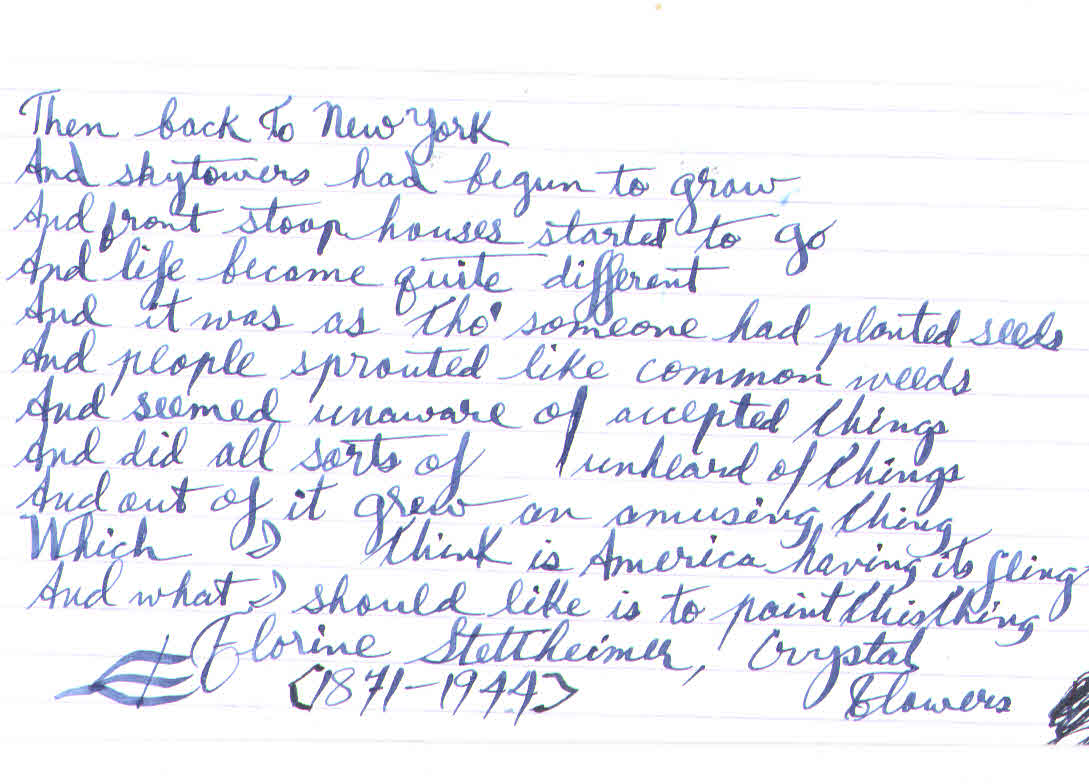 Then back To New York
And skytowers had begun to grow
And front stoop houses started to go
And life became quite different
And it was as tho' someone had planted seeds
And people sprouted like common weeds
And seemed unaware of accepted things
And did all sorts of unheard of things
And out of it grew an amusing thing
Which I think is America having its fling
And what I should like is to paint this thing
Florine Stettheimer, Crystal
(1871-1944) Flowers